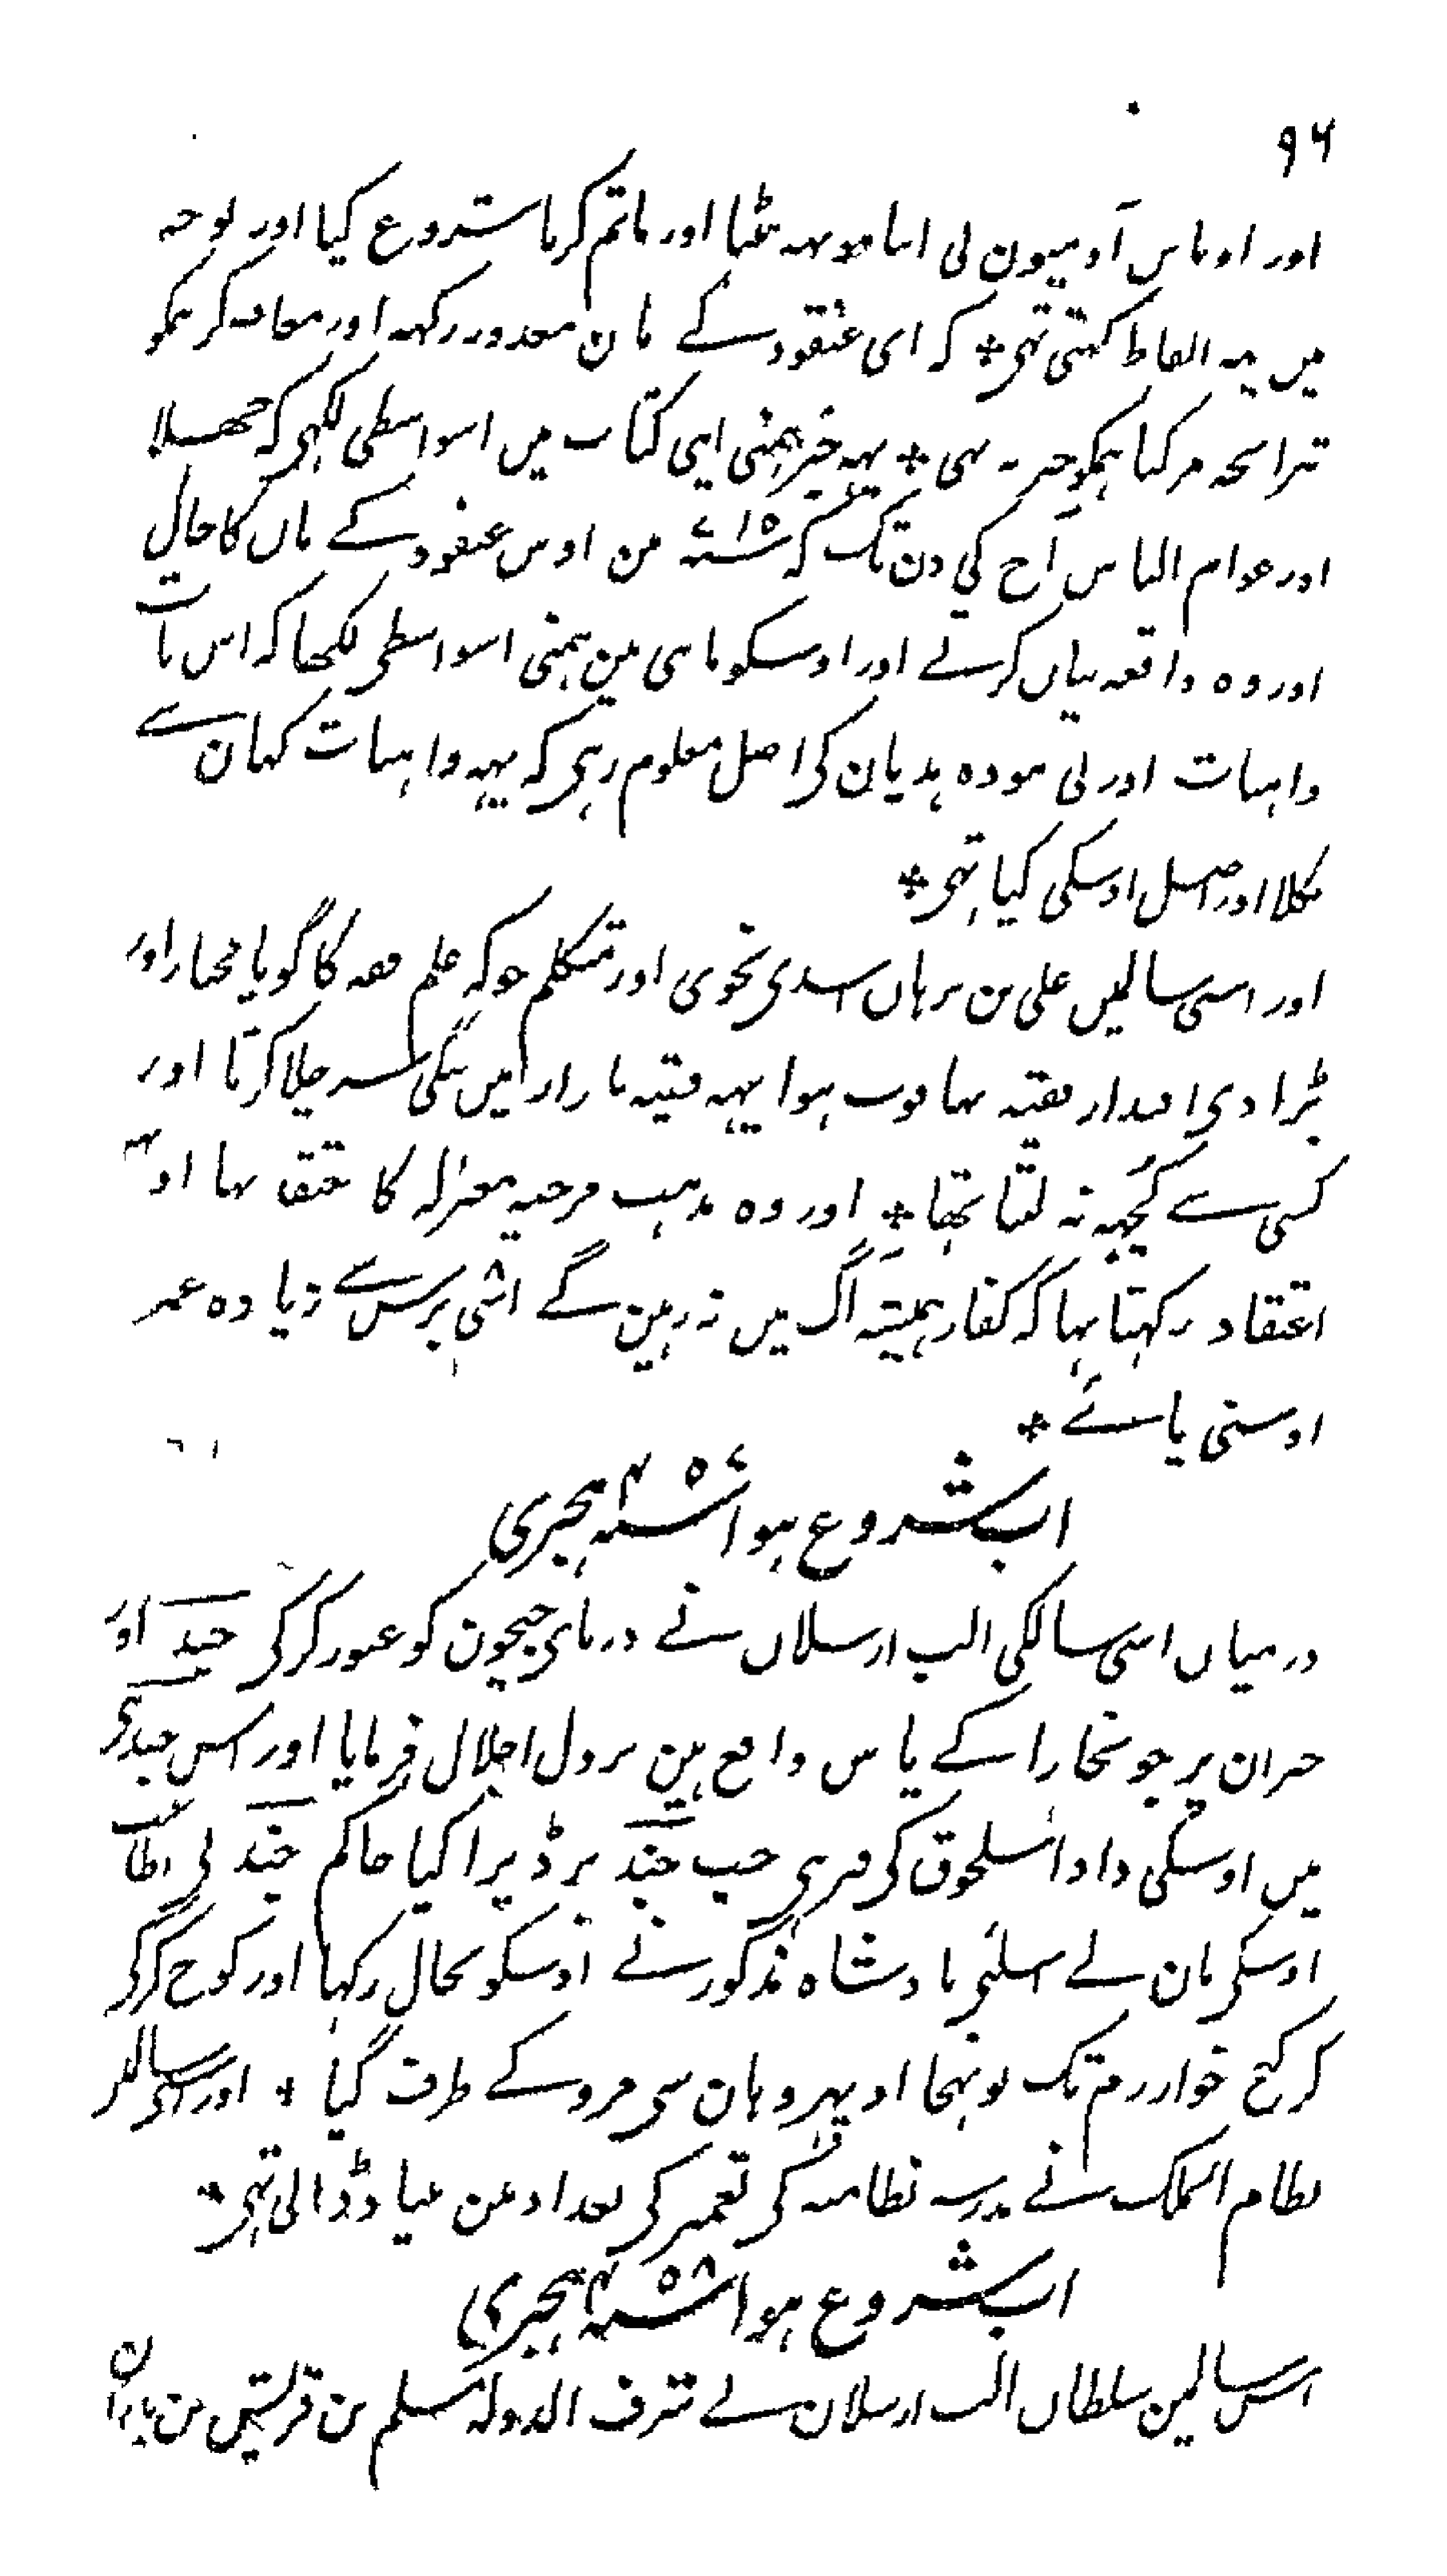 ۹۶
اور اوباش آدمیون نی اپنا مونہہ پٹنا اور ماتم کرنا شروع کیا اور نوحہ
میں یہ الفاظ کہتی تہی * کہ ای عنقود کے مان معذور رکہہ اور معاف کر ہمکو
تیرا بچہ مرگیا ہمکو خبر نہ تہی * یہہ خبر ہمنی اپنی کتاب میں اسواسطی لکہی کہ جہلا
اور عوام الناس آج کی دن تک کہ ۷۱۵سنہ ہین اوس عنقود کے ماں کا حال
اور وہ واقعہ بیاں کرتے اور اوسکو مانتی ہین ہمنی اسواسطی لکھا کہ اس بات
واہیات اور بی ہودہ ہذیان کی اصل معلوم رہی کہ یہہ واہیات کہان سے
نکلا اور اصل اوسکی کیا تہی *
اور اسی سالمیں علی بن برہاں اسدی نحوی اور متکلم جو کہ علم فقہ کا گویا مختار اور
بڑا ذی اقتدار فقیہ تہا فوت ہوا یہہ فقیہ بازار میں ننگی سر چلا کرتا اور
کسی سے کچہہ نہ لیتا تہا * اور وہ مذہب مرجیہ معتزلہ کا تہا اور یہہ
اعتقاد رکہتا تہا کہ کفار ہمیشہ آگ میں نہ رہین گے اسّی برس سے زیادہ عمر
اوسنی پائے *
اب شروع ہوا ۴۵۷سنہ ہجری
درمیاں اسی سالکی الپ ارسلاں نے دریای جیحون کو عبور کرکی جند اور
صبران پر جو بخارا کے پاس واقع ہین نزول اجلال فرمایا اور اس جند ہی
میں اوسکی دادا سلجوق کی قبر ہی جب جند پر ڈیرا کیا حاکم جند نی اطاعت
اوسکی مان لے اسلئی بادشاہ مذکور نے اوسکو بحال رکہا اور کوچ کرکی
کرکنج خوارزم تک پونہچا اور پہر وہان سی مرو کے طرف گیا * اور اسی سالمیں
نظام الملک نے مدرسہ نظامیہ کی تعمیر کی بغداد مین بنیاد ڈالی تہی *
اب شروع ہوا ۴۵۸سنہ ہجری
اس سالمین سلطاں الپ ارسلان نے شرف الدولہ مسلم بن قریش بن بدران